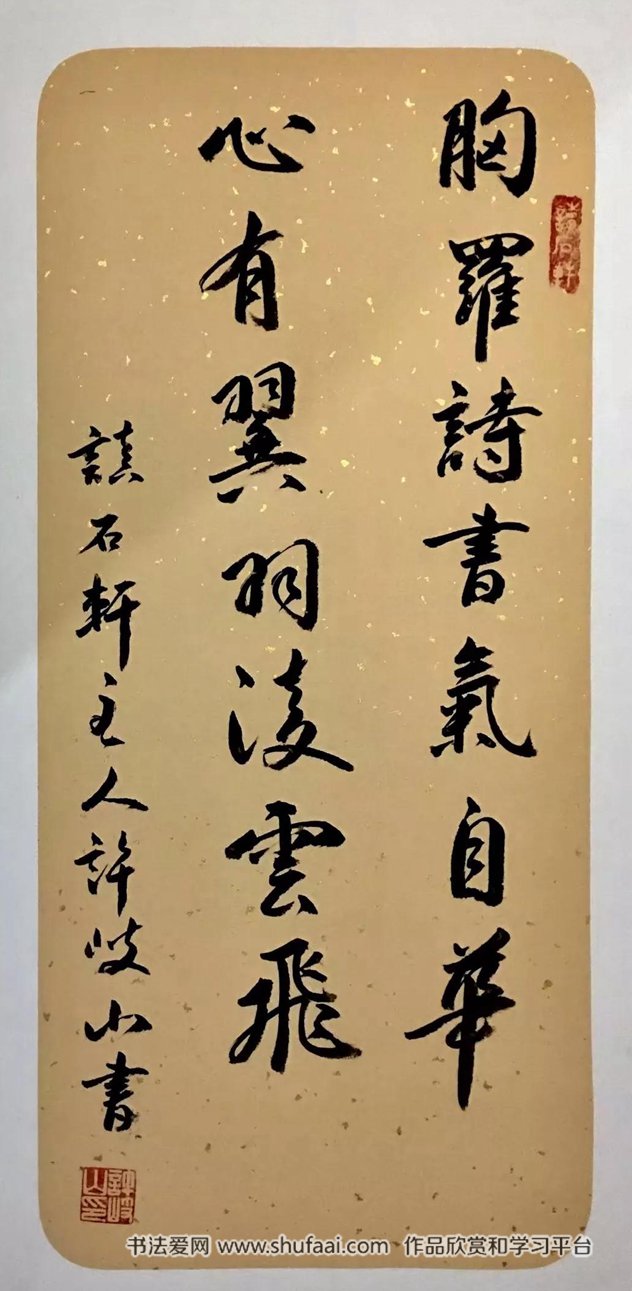 胸羅詩書氣自華
心有翼羽凌雲飛
石軒主人許岐山書
許岐山印
书法爱网 www.shufaai.com 作品欣赏和学习平台